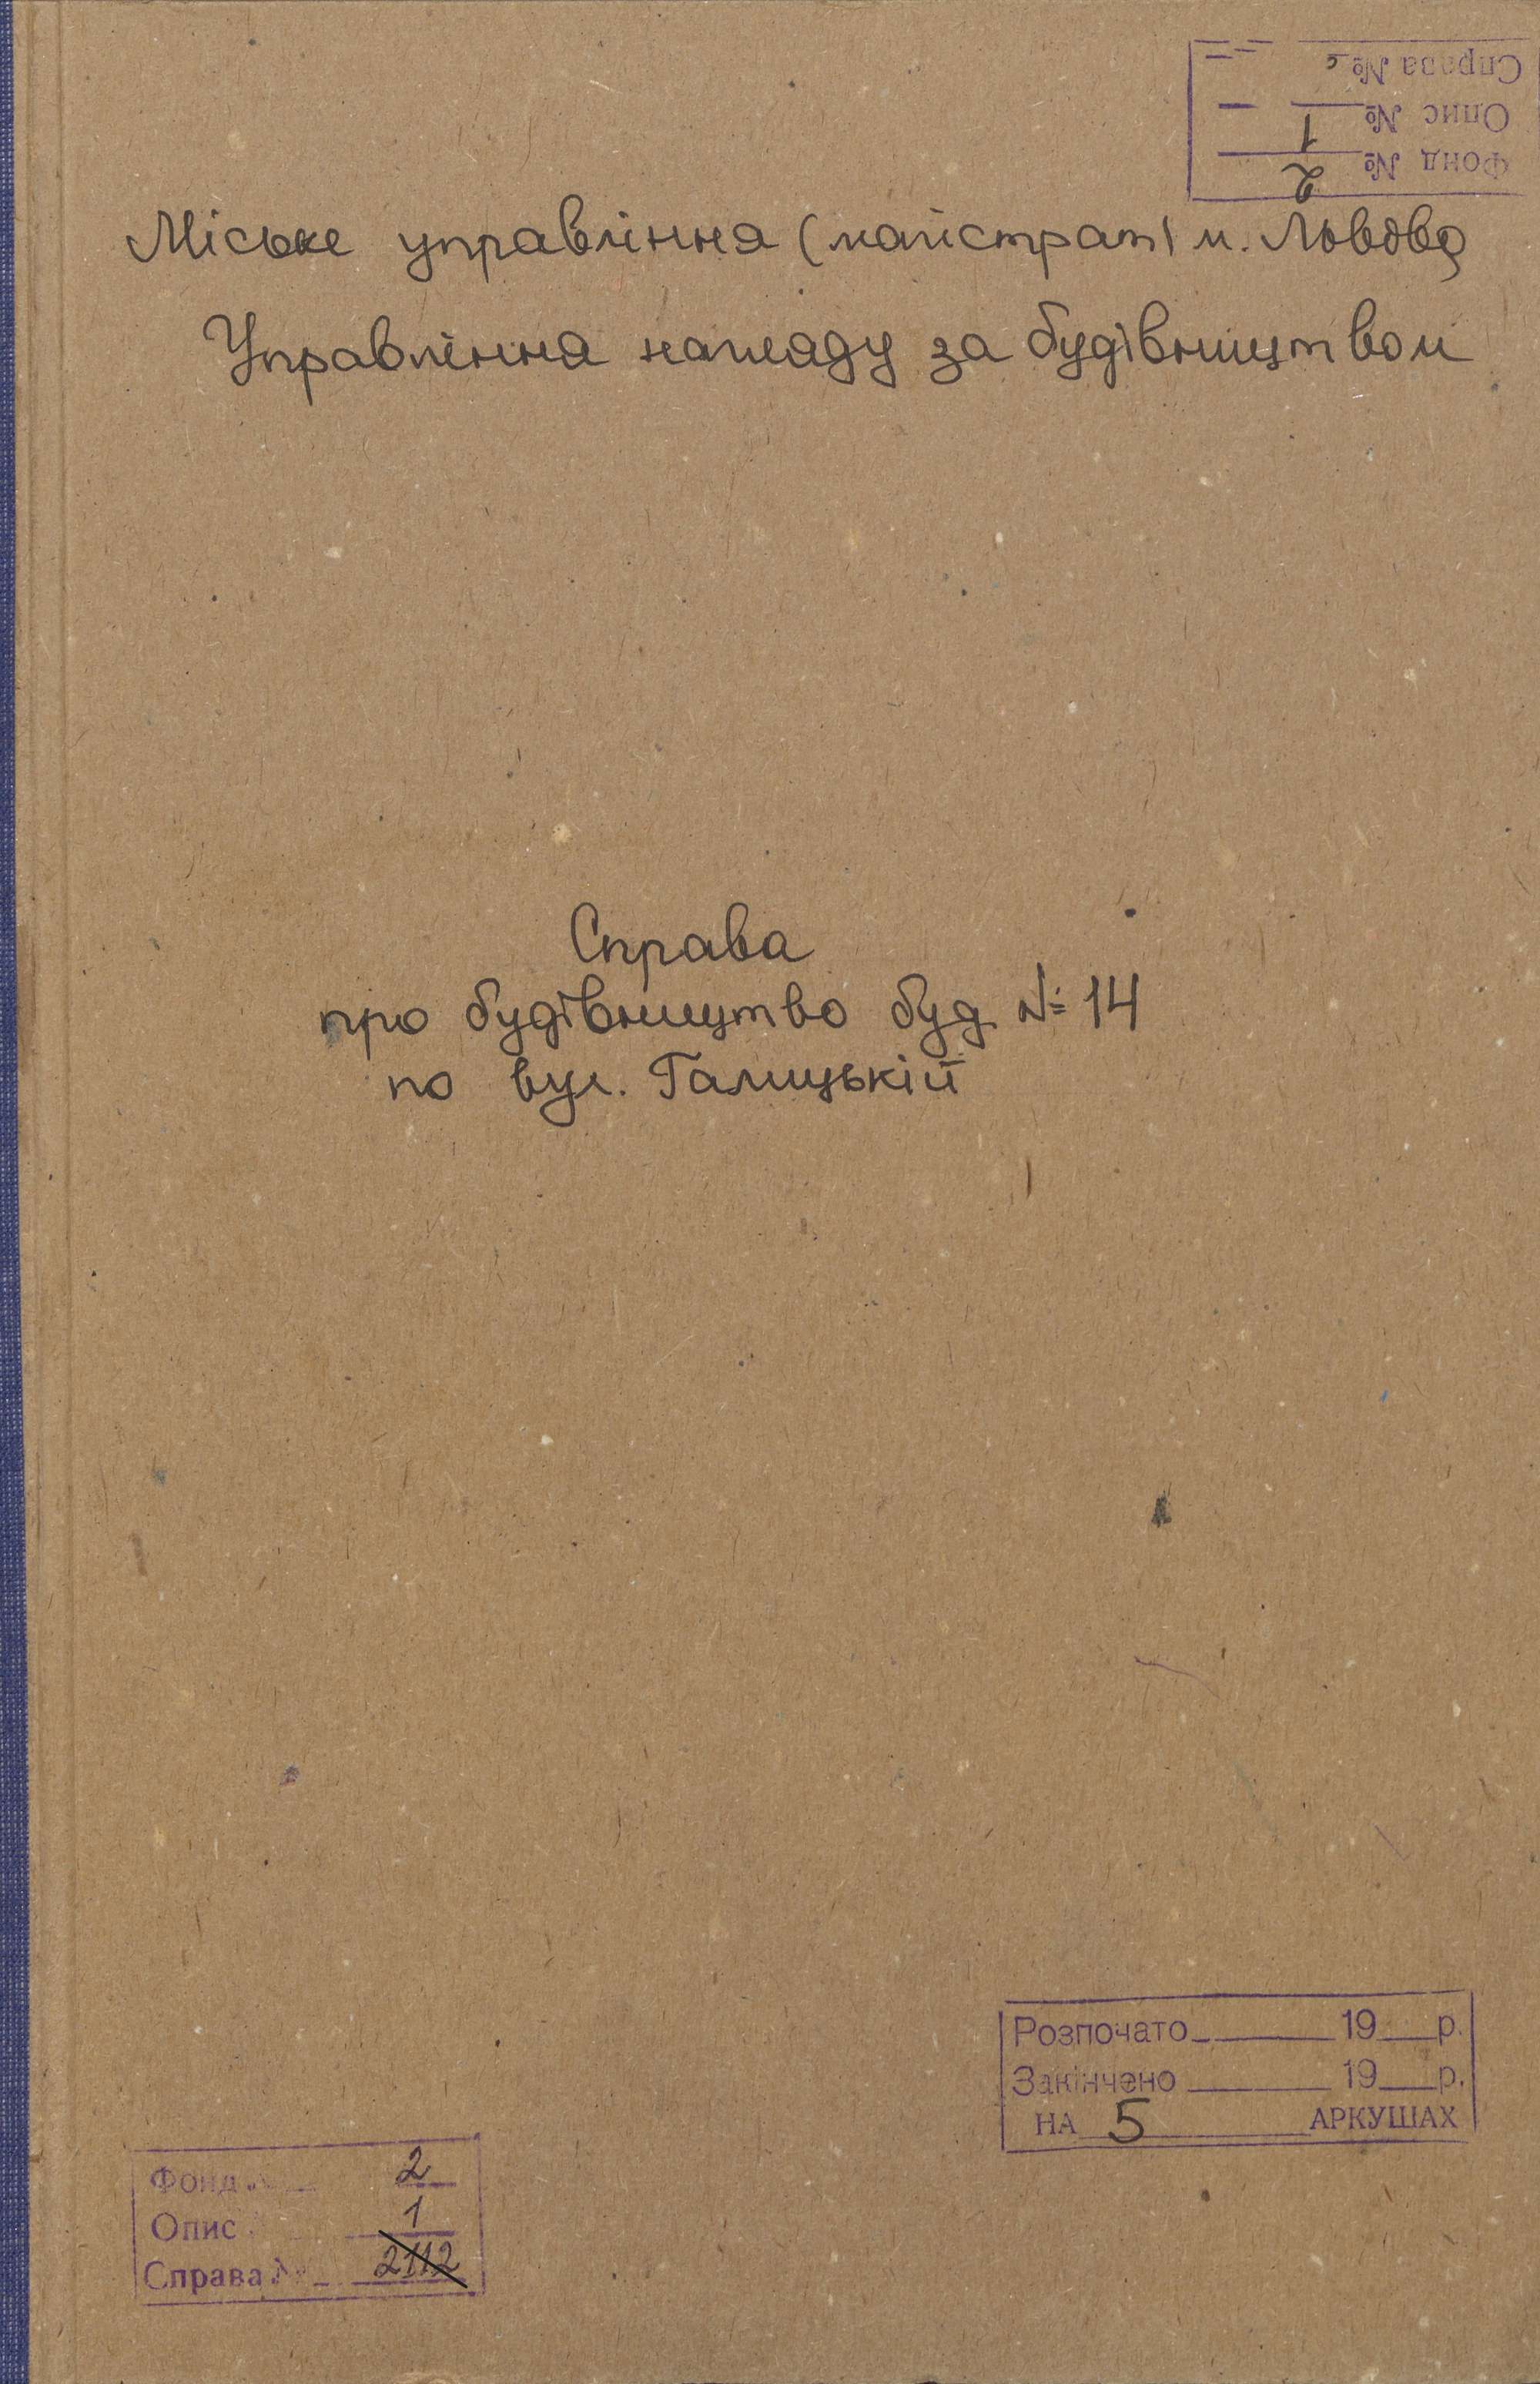 Справа №
Опис № 1
Фонд № 2
Міське управління (магістрат) м. Львова
Управління нагляду за будівництвом
Справа
про будівництво буд № 14
по вул. Галицькій
Розпочато 19 р.
Закінчено 19 р.
НА 5 АРКУШАХ
Фонд 2
Опис 1
Справа № 2112